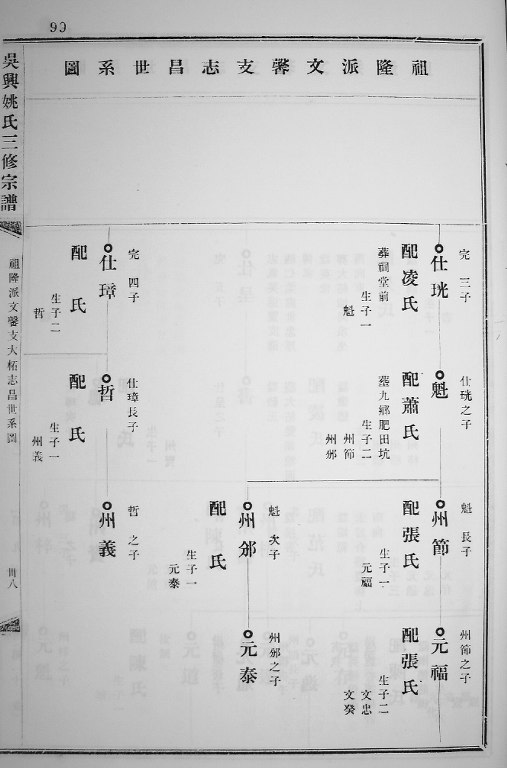 90
祖隆派文馨支志昌世系圖
吳興姚氏三修宗譜
祖隆派文馨支大柘志昌世系圖
卅八
完 三子
仕珖
配凌氏
葬祠堂前
生子一
魁
完 四子
仕璋
配 氏
生子二
哲
仕珖之子
魁
配蕭氏
塟九鄉肥田坑
生子二
州節
州邠
仕璋長子
哲
配 氏
生子一
州義
魁 長子
州節
配張氏
生子一
元福
魁 次子
州邠
配 氏
生子一
元泰
哲 之子
州義
州節之子
元福
配張氏
生子二
文忠
文癸
州邠之子
元泰